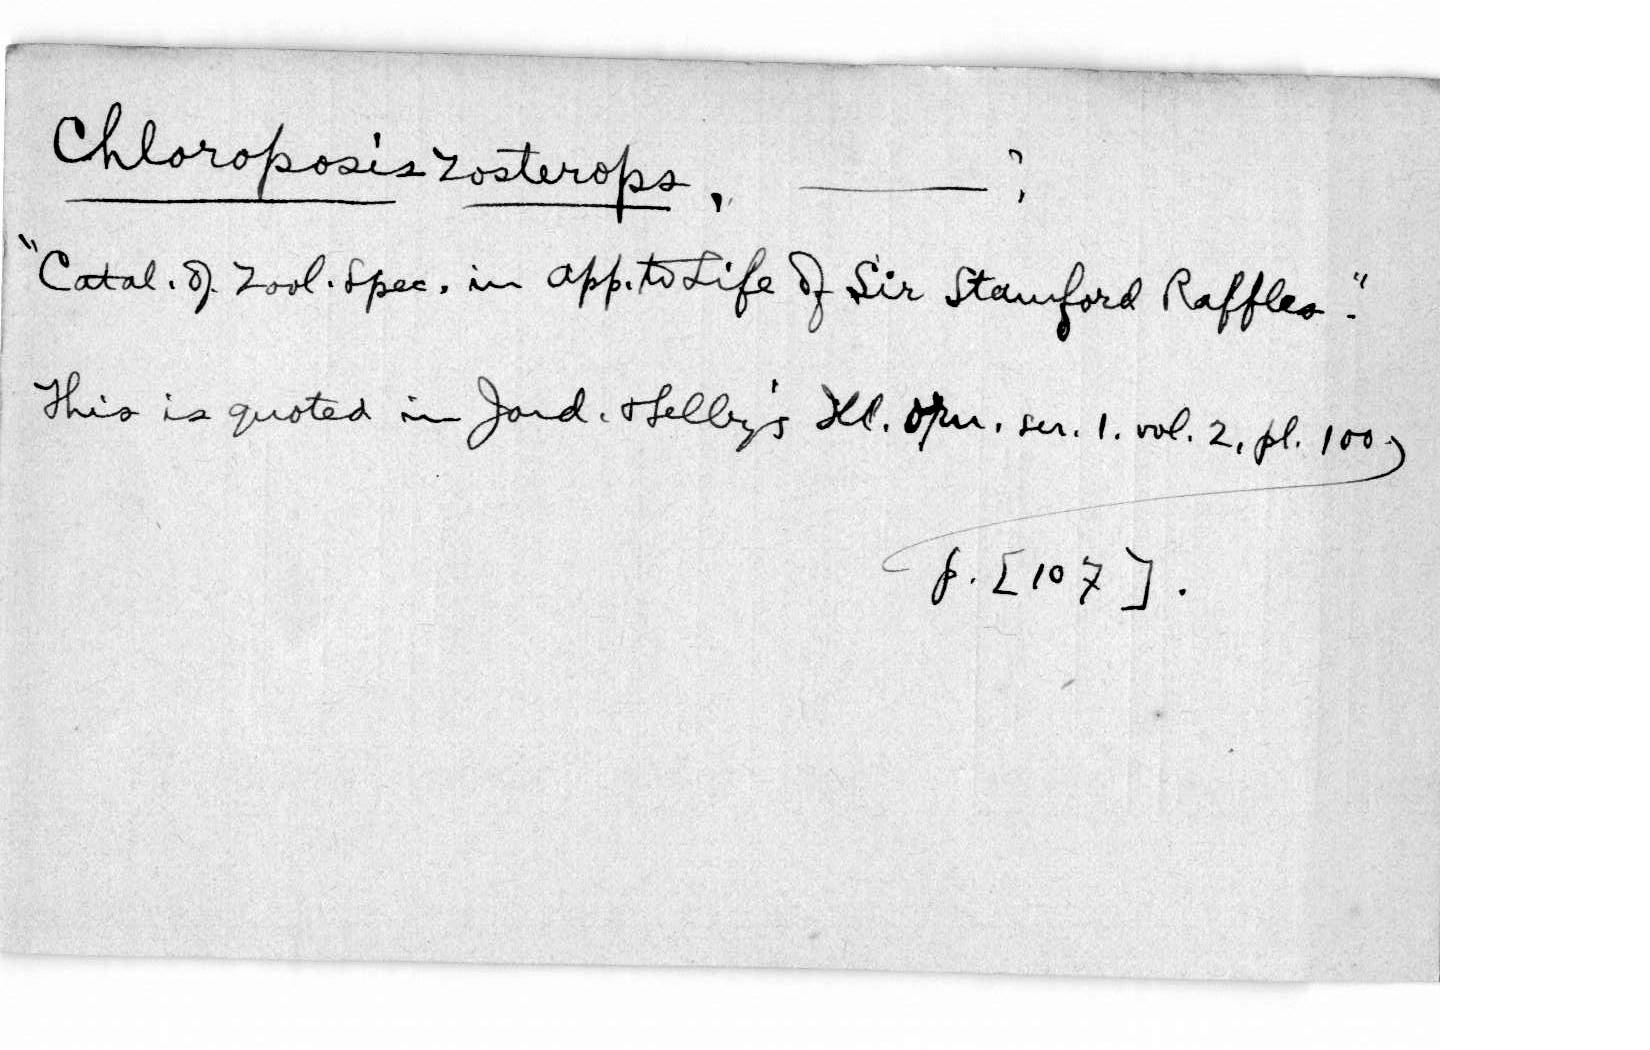 Chloroposis zosterops, ———?,
"Catal. of Zool. Spec. in app. to Life of Sir Stamford Raffles."
This is quoted in Jard. & Selby's Ill. Orn. ser. 1. vol. 2, pl. 100,
p. [107].